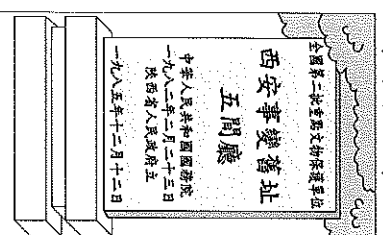 全國第二批重點文物保護單位
西安事變舊址
五間廳
中華人民共和國國務院
一九八二年二月二十三日
陝西省人民政府立
一九八五年十二月十二日